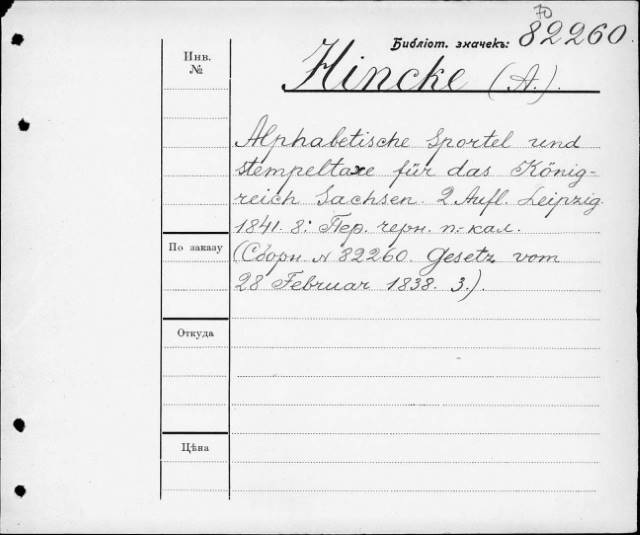 70
Библіот. значекъ: 82260.
Инв.
№
Hincke (A.).
Alphabetische Sportel und
stempeltaxe für das König-
reich Sachsen. 2 Aufl. Leipzig.
1841. 8: Пер. черн. п.-кал.
По заказу
(Сборн. № 82260. Gesetz vom
28 Februar 1838. 3.).
Откуда
Цѣна